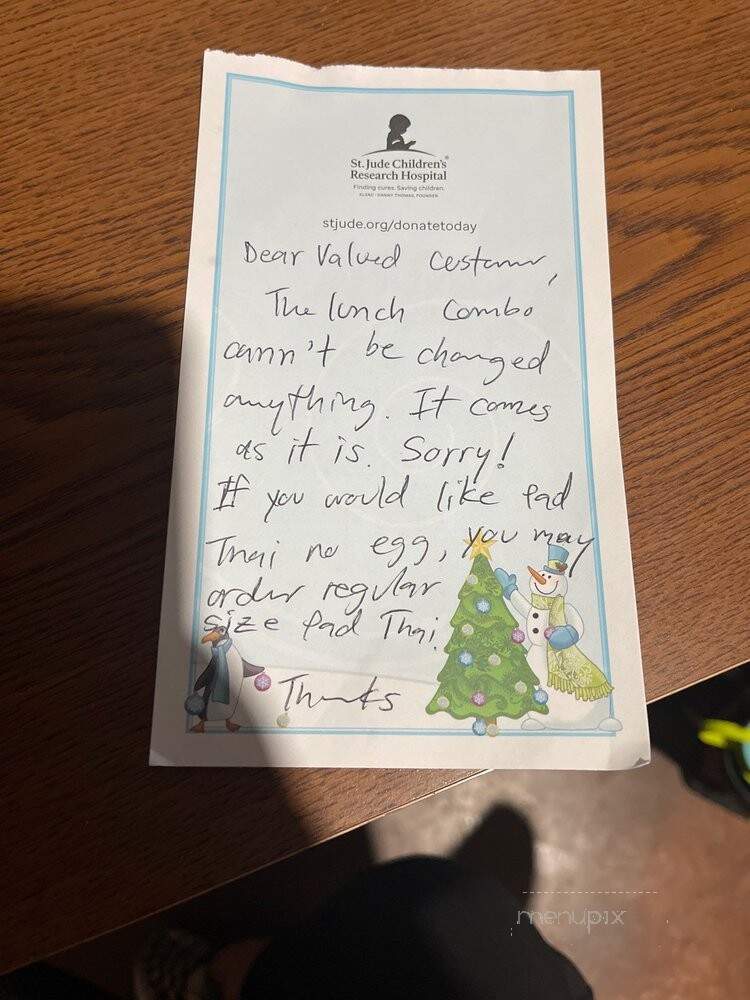 St. Jude Children's®
Research Hospital
Finding cures. Saving children.
ALSAC · DANNY THOMAS, FOUNDER
stjude.org/donatetoday
Dear Valued Customer,
The lunch Combo
cann't be changed
anything. It comes
as it is. Sorry!
If you would like Pad
Thai no egg, you may
order regular
size Pad Thai.
Thanks
menupix